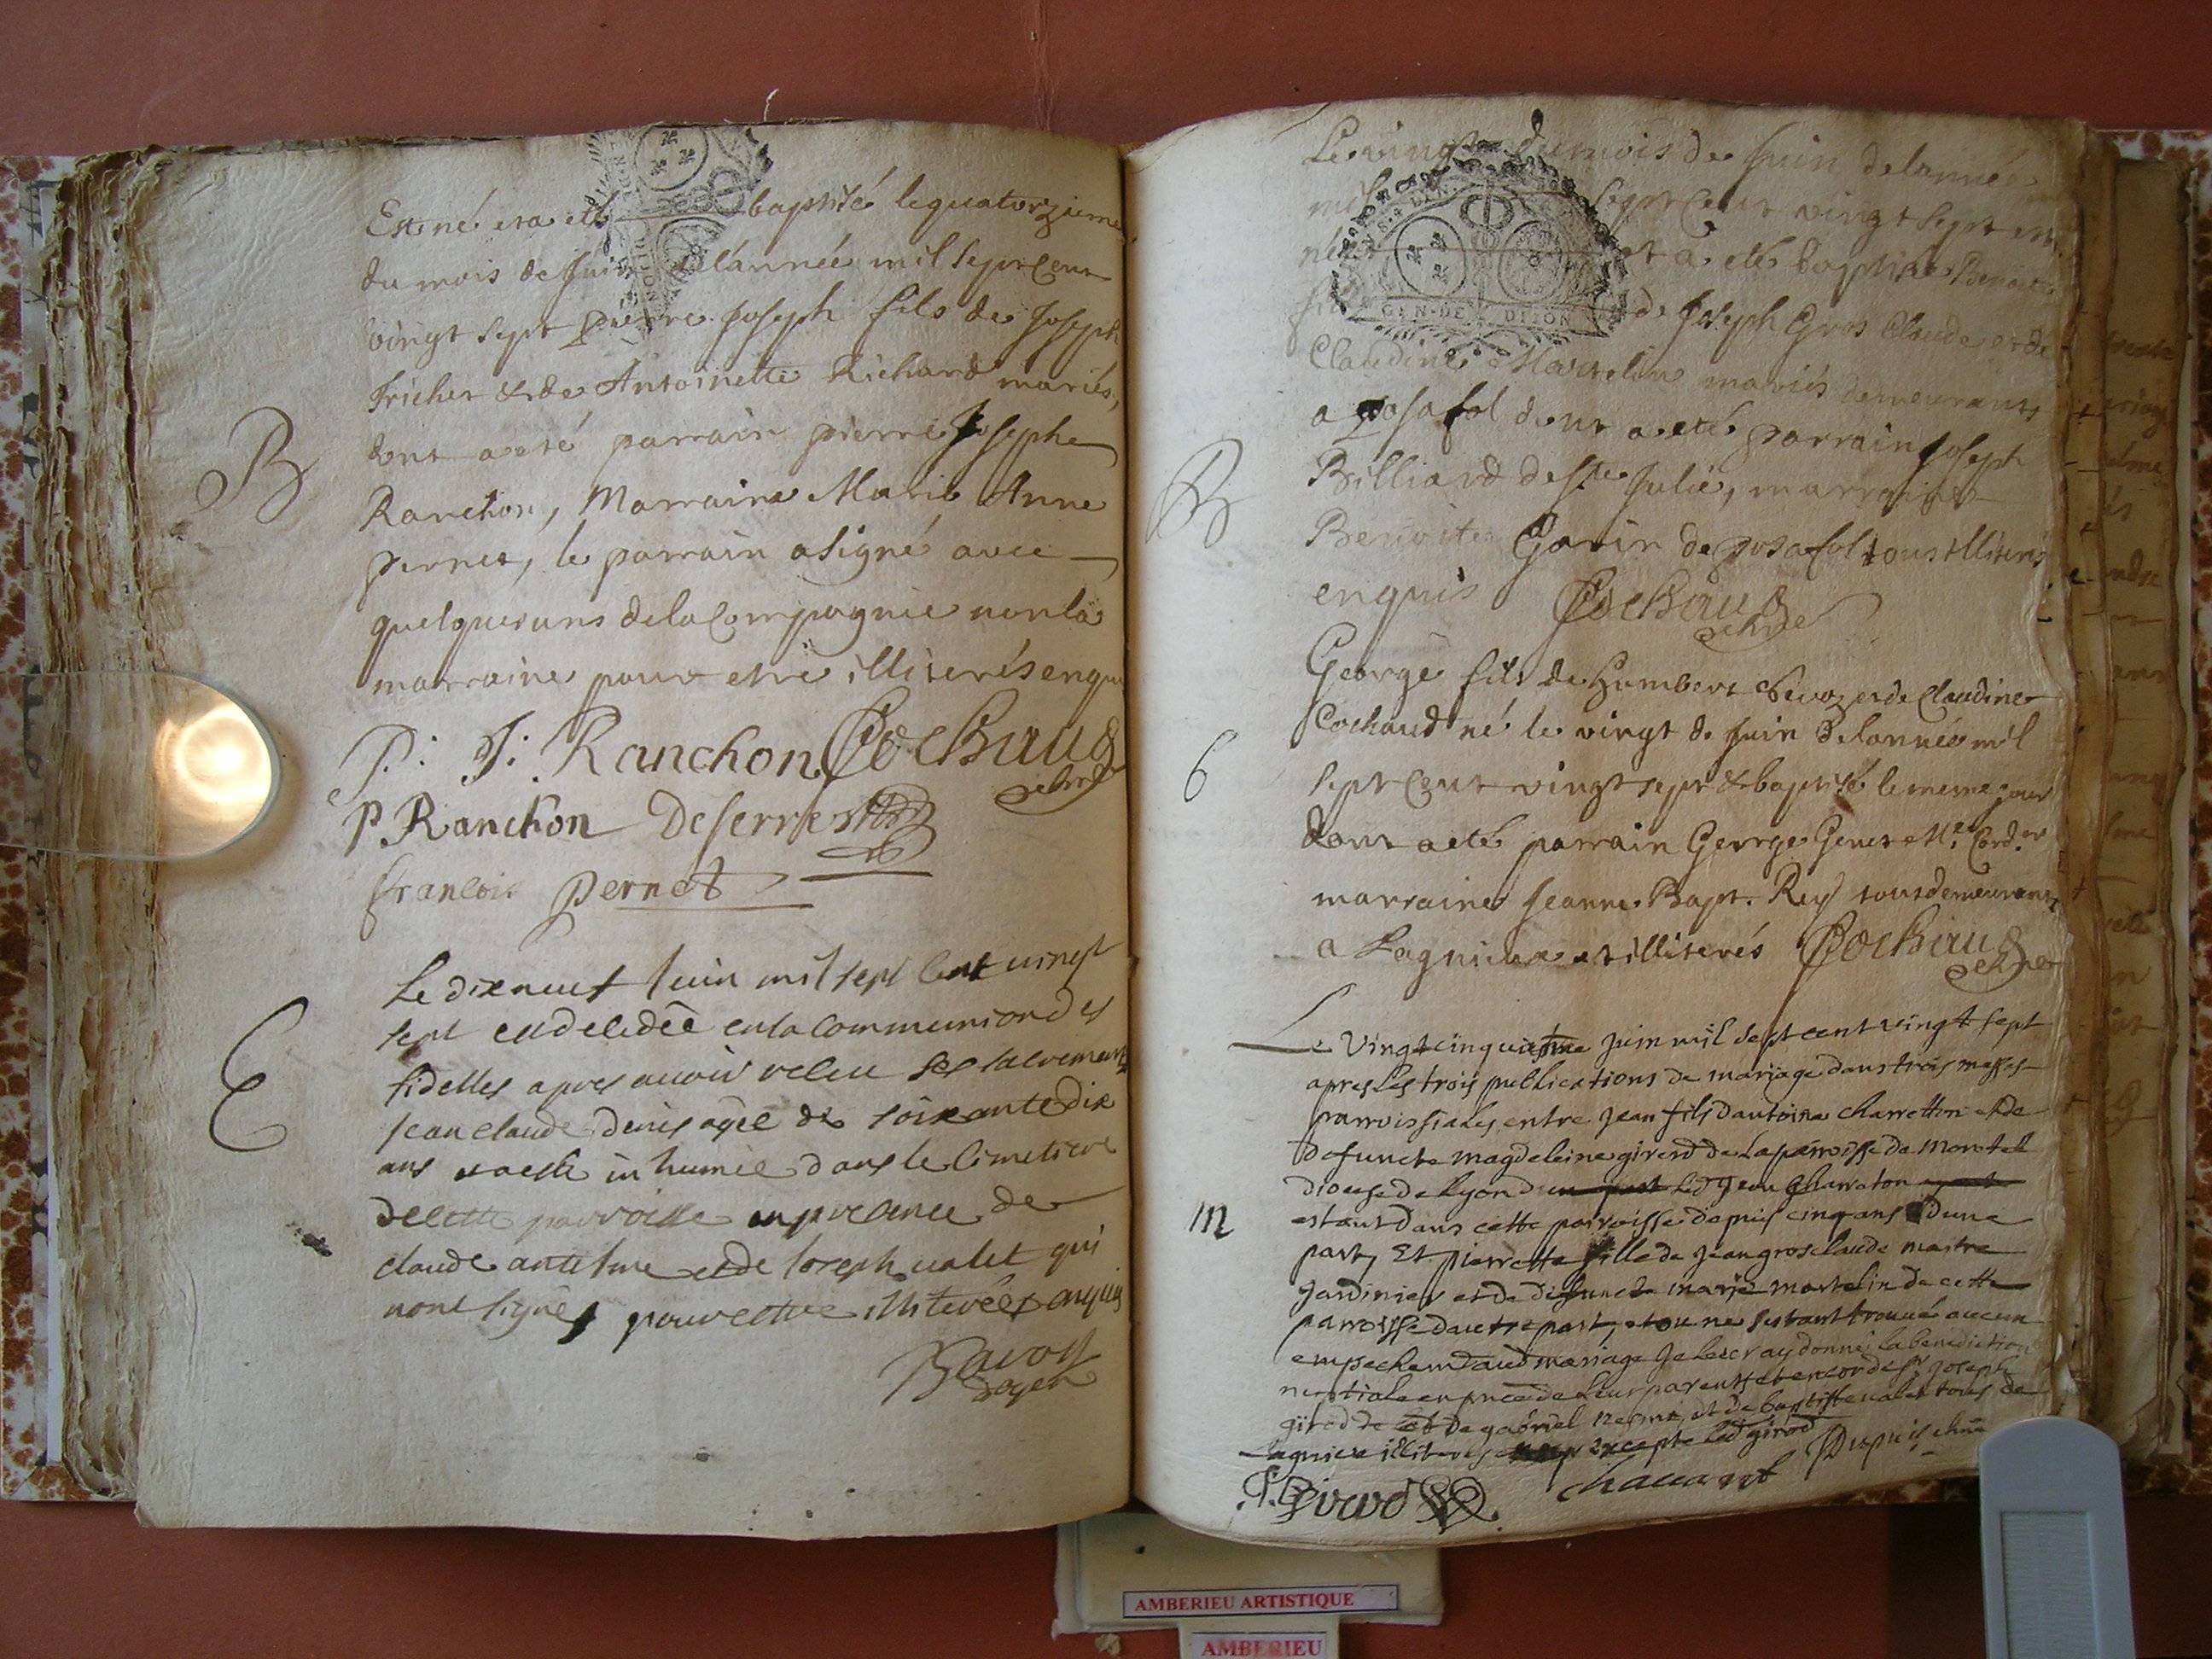 Est né et a eté baptisé le quatorzieme
du mois de Juin de l'année mil sept cent
vingt sept pierre Joseph fils de Joseph
Fricher & de Antoinette Richard mariés,
dont a eté parrain pierre Josephe
Ranchon, Marraine Marie Anne
pernet, le parrain a signé avec
quelques uns de la Compagnie non la
marraine pour etre illiterés enquis
B
P: J: Ranchon Cochaud
P. Ranchon Deserres
francois pernet
Le dixneuf Juin mil sept cent vingt
sept est decedée en la Communion des
fidelles apres avoir receu ses sacrements
Jean claude denis agée de soixante dix
ans et a esté inhumée dans le cimetiere
E
de cette parroisse en presence de
claude antelme et de Joseph valet qui
n'ont signés pour estre illiterées enquis
Le vingt du mois de Juin de l'année
mil sept cent vingt sept est
né et a eté baptisé
de Joseph Gros Claude et de
Claudine Martelin mariés demeurants
a posafol dont a eté parrain Joseph
Billiard de Ste Julie, marraine
B
Benoite Garin de posafol tous illiterés
enquis Cochaud
George fils de Humbert et de Claudine
Cochaud né le vingt de Juin de l'année mil
sept cent vingt sept & baptisé le meme jour
dont a eté parrain George Genet Me. Cord.er
marraine Jeanne Bapt. Rey tous demeurants
a Lagnieu et illiterés Cochaud
Le Vingtcinquieme juin mil sept cent vingt sept
apres les trois publications de mariage dans trois messes
parroissiales, entre jean fils d'antoine charretton et de
defuncte magdeleine girerd de la parroisse de
diocese de lyon led jean Charreton
estant dans cette parroisse depuis cinq ans d'une
m
part, Et pierrette fille de jean grosclaude maitre
jardinier et de defuncte marie martelin de cette
parroisse d'autre part, et ou ne s'estant trouvé aucun
empechem aud mariage je leur ay donné la benediction
nuptiale en pnce de leur parents et encor de sr joseph
girod et de gabriel et de baptiste valet tous de
lagnieu illiteres excepté led girod
Girod chauant Dupuis
GEN·DE DIJON
AMBERIEU ARTISTIQUE
AMBERIEU